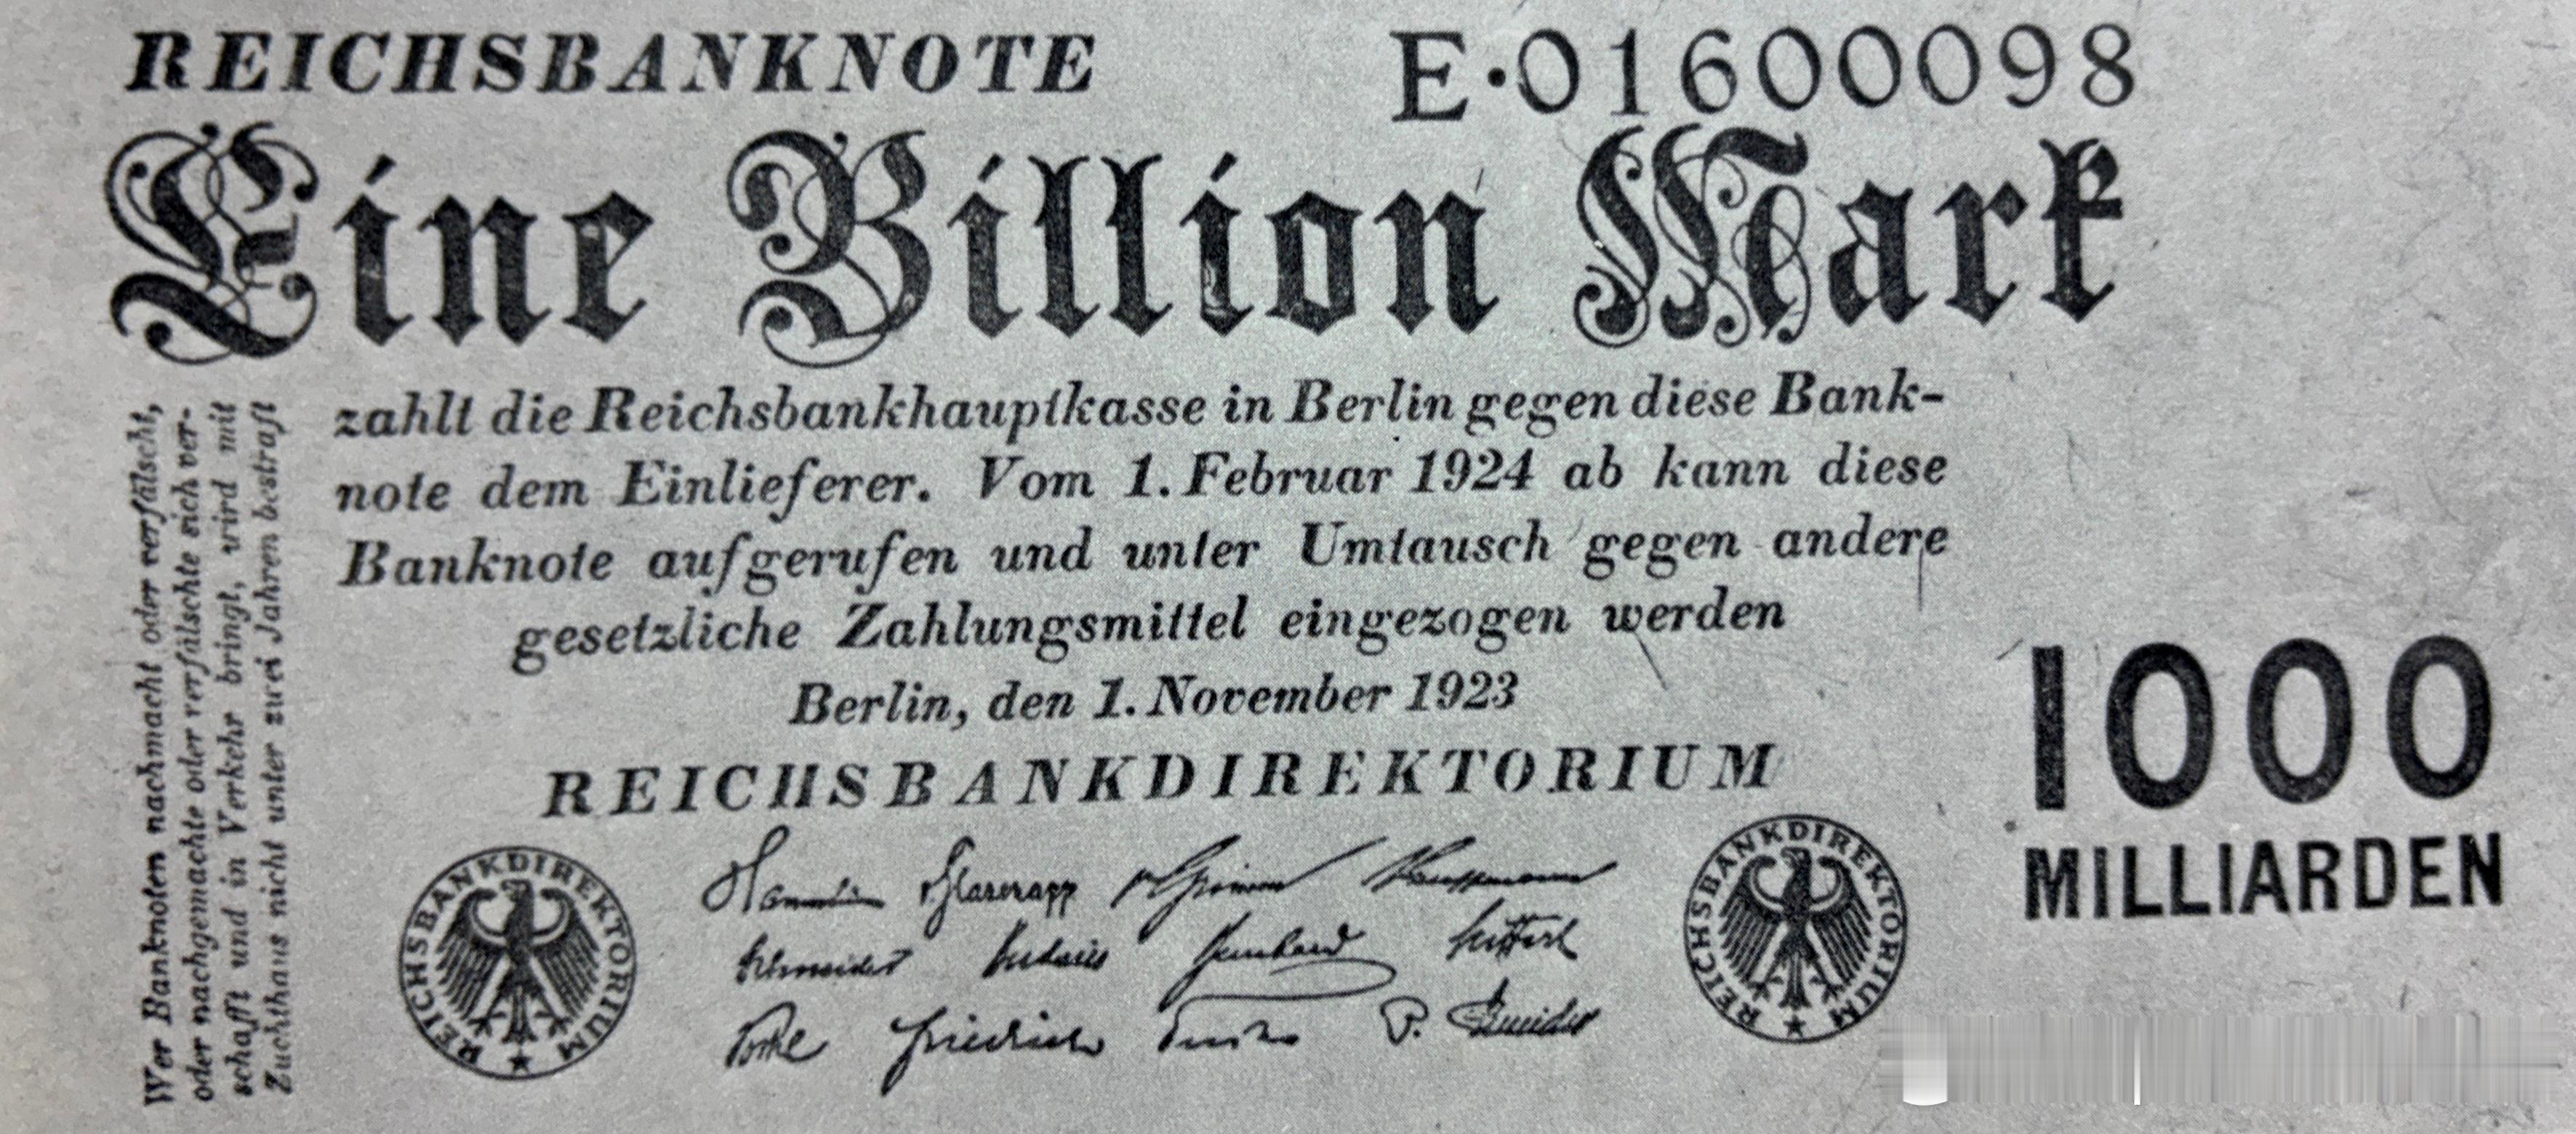 REICHSBANKNOTE
E·01600098
Eine Billion Mark
zahlt die Reichsbankhauptkasse in Berlin gegen diese Bank-
note dem Einlieferer. Vom 1. Februar 1924 ab kann diese
Banknote aufgerufen und unter Umtausch gegen andere
gesetzliche Zahlungsmittel eingezogen werden
Berlin, den 1. November 1923
REICHSBANKDIREKTORIUM
Wer Banknoten nachmacht oder verfälscht,
oder nachgemachte oder verfälschte sich ver-
schafft und in Verkehr bringt, wird mit
Zuchthaus nicht unter zwei Jahren bestraft
1000
MILLIARDEN
REICHSBANKDIREKTORIUM
v. Glasenapp v. Grimm Kauffmann
Schneider Budczies Bernhard Seiffert
Vocke Friedrich Fuchs P. Schneider
REICHSBANKDIREKTORIUM